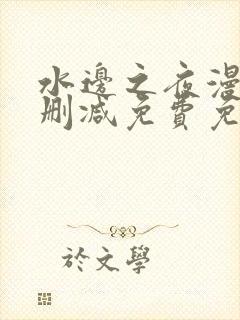 水邊之夜漫
刪減免費免
於文學